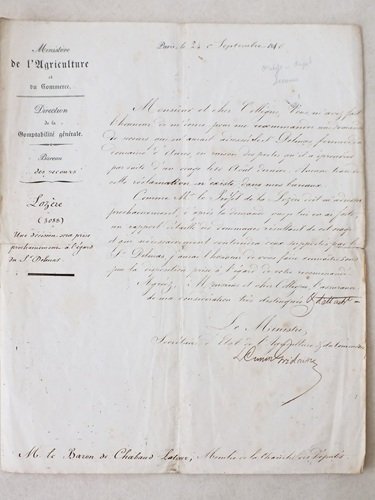 Ministère
de l'Agriculture
et
du Commerce.
Direction
de la
Comptabilité générale.
Bureau
des secours
Lozère
(3088)
Une décision sera prise
prochainement à l'égard
du Sr Delmas
Paris, le 24 Septembre
Monsieur et cher Collègue, Vous m'avez fait
l'honneur de m'écrire pour me recommander une demande
de secours Delmas fermier
domaine en raison des pertes qu'il a éprouvées
par suite d'un orage Août dernier. Aucune trace de
cette réclamation n'existe dans mes bureaux
Comme Mr le Préfet de la Lozère doit m'adresser
prochainement, d'après la demande que je lui en ai faite,
un rapport détaillé des dommages résultant de cet orage
et que
Sr Delmas, j'aurai l'honneur de vous faire connaître
que la disposition prise à l'égard de votre recommandé
Agréez, Monsieur et cher Collègue, l'assurance
de ma considération très distinguée
Le Ministre,
Secrétaire d'Etat de l'Agriculture & du Commerce
L. Cunin Gridaine
M. le Baron de Chabaud Latour, Membre de la Chambre des Députés